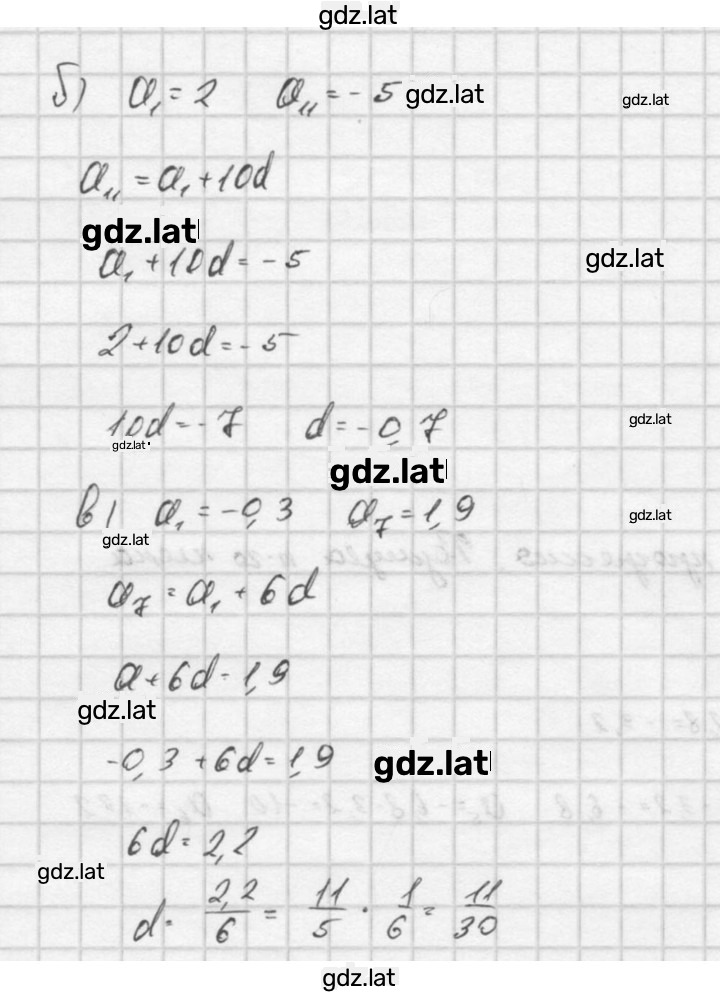 gdz.lat
б) a₁ = 2 a₁₁ = - 5 gdz.lat gdz.lat
a₁₁ = a₁ + 10d
gdz.lat
a₁ + 10d = - 5 gdz.lat
2 + 10d = - 5
10d = - 7 d = - 0,7 gdz.lat
gdz.lat
gdz.lat
в) a₁ = -0,3 a₇ = 1,9 gdz.lat
gdz.lat
a₇ = a₁ + 6d
a + 6d = 1,9
gdz.lat
-0,3 + 6d = 1,9 gdz.lat
6d = 2,2
gdz.lat
d = 2,2/6 = 11/5 · 1/6 = 11/30
gdz.lat